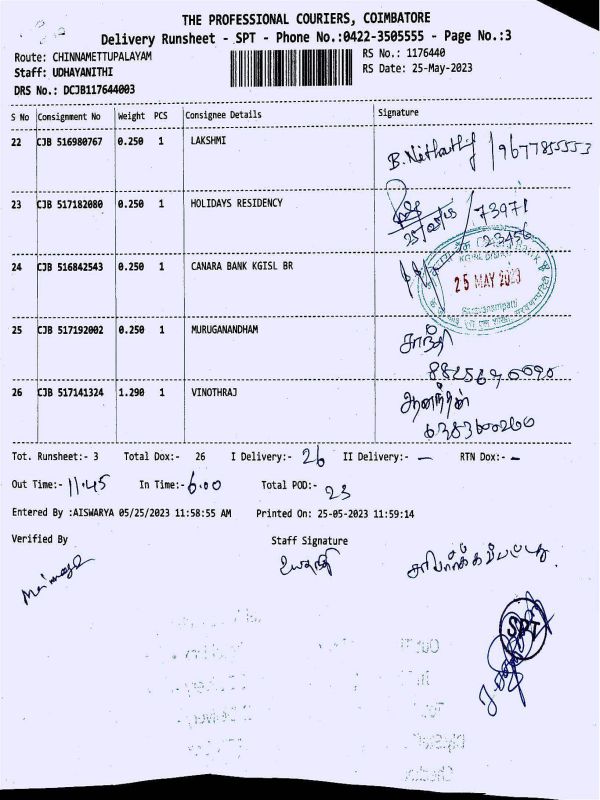 THE PROFESSIONAL COURIERS, COIMBATORE
Delivery Runsheet - SPT - Phone No.:0422-3505555 - Page No.:3
Route: CHINNAMETTUPALAYAM RS No.: 1176440
Staff: UDHAYANITHI RS Date: 25-May-2023
DRS No.: DCJB117644003
S No Consignment No Weight PCS Consignee Details Signature
22 CJB 516980767 0.250 1 LAKSHMI
9677855553
23 CJB 517182080 0.250 1 HOLIDAYS RESIDENCY
73971
25/05/23
23456
24 CJB 516842543 0.250 1 CANARA BANK KGISL BR
25 MAY 2023
Saravanampatti
25 CJB 517192002 0.250 1 MURUGANANDHAM
சாந்தி
26 CJB 517141324 1.290 1 VINOTHRAJ
ஆனந்தன்
6383600260
Tot. Runsheet:- 3 Total Dox:- 26 I Delivery:- 26 II Delivery:- — RTN Dox:- —
Out Time:- 11.45 In Time:- 6.00 Total POD:- 23
Entered By :AISWARYA 05/25/2023 11:58:55 AM Printed On: 25-05-2023 11:59:14
Verified By Staff Signature
சரிபார்க்கப்பட்டது.
SPT